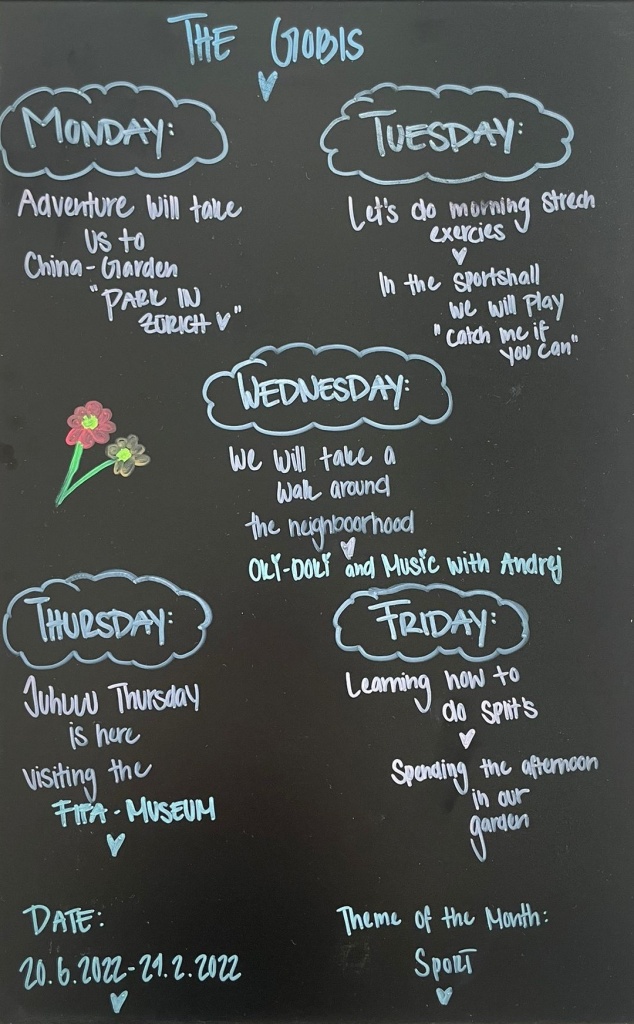 THE GOBIS
MONDAY:
Adventure will take
us to
China-Garden
"PARK IN
ZÜRICH"
TUESDAY:
Let's do morning strech
exercies
In the sportshall
we will play
"catch me if
you can"
WEDNESDAY:
We will take a
walk around
the neighboorhood
OKI-DOKI and Music with Andrej
THURSDAY:
Juhuuu Thursday
is here
visiting the
FIFA-MUSEUM
FRIDAY:
Learning how to
do split's
Spending the afternoon
in our
garden
DATE:
20.6.2022-21.2.2022
Theme of the Month:
SPORT